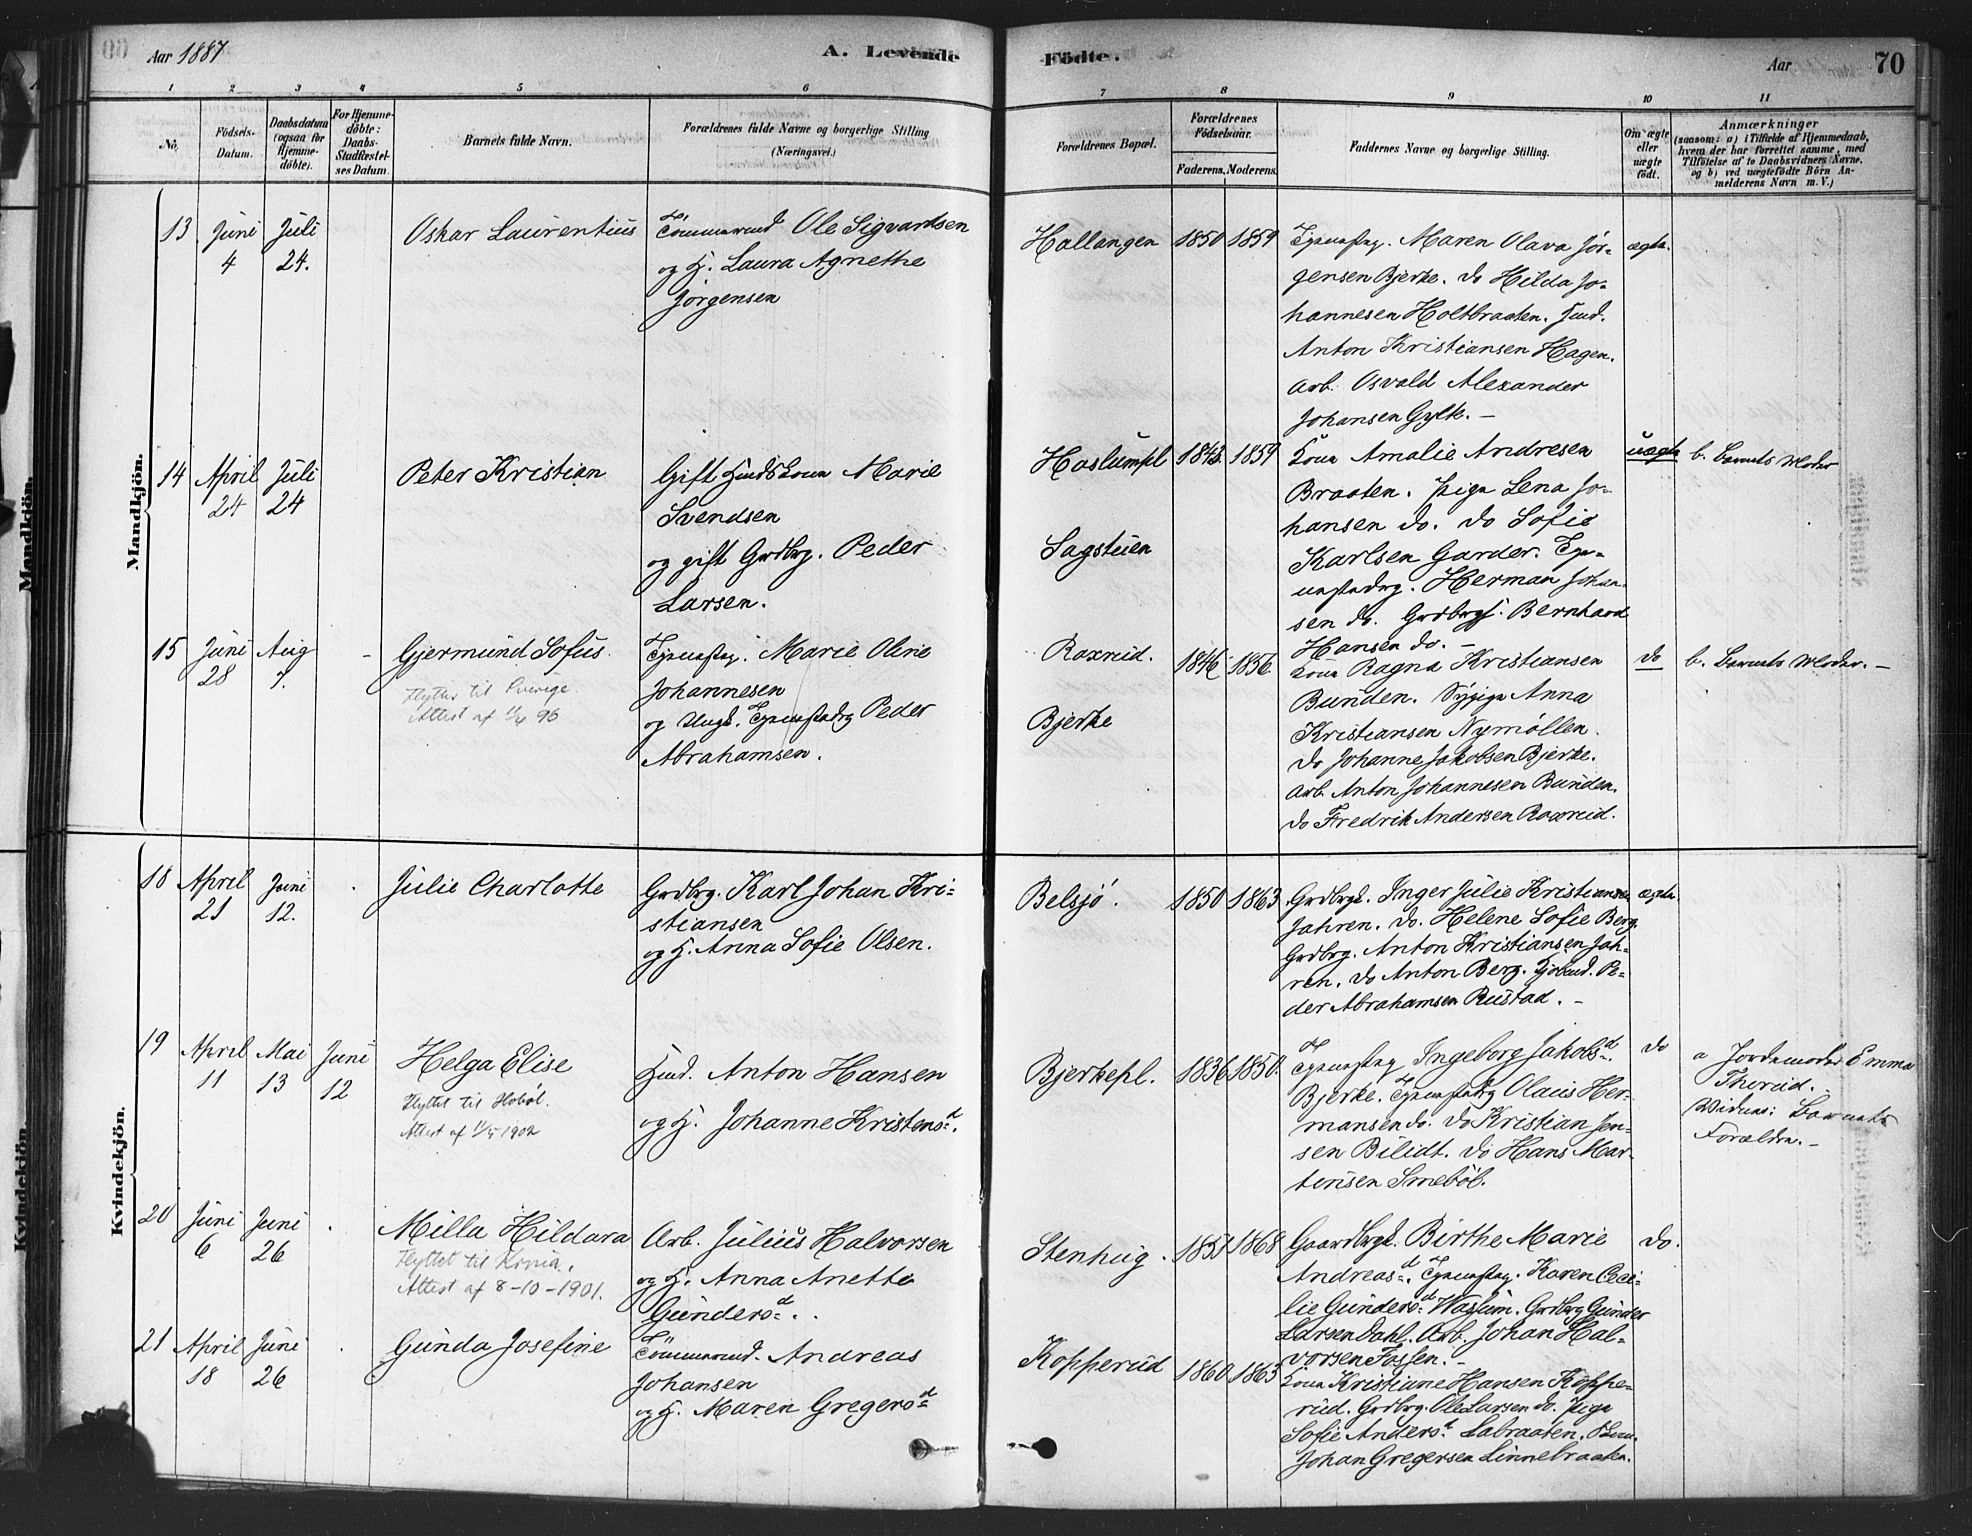 Aar 1887
A. Levende Födte.
Aar
70
1 2 3 4 5 6 7 8 9 10 11
No.
Födsels-Datum.
Daabsdatum (ogsaa for Hjemme-döbte).
For Hjemme-döbte: Daabs-Stadfæstel-ses Datum.
Barnets fulde Navn.
Forældrenes fulde Navne og borgerlige Stilling (Næringsvei.)
Forældrenes Bopæl.
Forældrenes Födselsaar.
Faderens. Moderens.
Faddernes Navne og borgerlige Stilling.
Om ægte eller uægte födt.
Anmærkninger
(saasom: a) i Tilfælde af Hjemmedaab,
hvem der har forrettet samme, med
Tilföielse af to Daabsvidners Navne.
og b) ved uægtefödte Börn An-
melderens Navn m. V.)
Mandkjön.
13
Juni 4
Juli 24.
Oskar Laurentius
Tömmermd Ole Sigvardsen
og H. Laura Agnethe
Jörgensen
Hallangen
1850 1859
Maren Olava Jör-
gensen Bjerke. do Hilda Jo-
hannesen Holtbraaten.
Anton Kristiansen Hagen.
Arb. Osvald Alexander
Johansen Gylte. –
ægte.
14
April 24
Juli 24
Peter Kristian
Gift Husmdskona Marie
Svendsen
og gift Grdbrg. Peder
Larsen.
Haslumpl
Sagstuen
1843 1859
Kona Amalie Andresen
Braaten. Pige Lena Jo-
hansen do. do Sofie
Karlsen Garder.
Herman Johan-
sen do. Bernhard
Hansen do. –
uægte
b. Barnets Moder
15
Juni 28
Aug 7.
-
Gjermund Sofus.
Flytter til Sverige.
Attest af 11/4 96
Marie Oline
Johannesen
og Ungk. Peder
Abrahamsen.
Roxrud.
Bjerke
1846 1856.
Kona Ragna Kristiansen
Bunden. Sypige Anna
Kristiansen Nymöllen.
do Johanne Jakobsen Bjerke.
Arb. Anton Johannesen Bunden.
do Fredrik Andersen Roxrud.
do
b. Barnets Moder. –
Kvindekjön.
18
April 21
Juni 12.
Julie Charlotte
Grdbrg. Karl Johan Kri-
stiansen
og H. Anna Sofie Olsen.
Belsjö.
1850 1863
Inger Julie Kristiansen
Jahren. do. Helene Sofie Berg.
Grdbrg. Anton Kristiansen Jah-
ren. do Anton Berg. Pe-
der Abrahamsen Rustad. –
ægte.
19
April 11
Mai 13
Juni 12
Helga Elise
Flyttet til Hobøl.
Attest af 1/5 1902
Husmd. Anton Hansen
og H. Johanne Kristensd.
Bjerkepl.
1836 1850.
Ingeborg Jakobsd.
Bjerke. Olaus Her-
mansen do. do Kristian Jen-
sen Bilidt. do Hans Mar-
tinsen Smeböl.
do
a Jordemoder Emma
Therud.
Vidner: Barnets
Forældre. –
20
Juni 6
Juni 26
Milla Hildara
Flyttet til Krnia.
Attest af 8-10-1901.
Arb. Julius Halvorsen
og H. Anna Anette
Gundersd.
Stenhug.
1851 1868
Birthe Marie
Andreasd. Karen Ceci-
lie Gundersd. Waslum. Grdbrg Gunder
Larsen Dahl. Arb. Johan Hal-
vorsen Fossen. –
do.
21
April 18
Juni 26
Gunda Josefine
Tömmermd. Andreas
Johansen
og H. Maren Gregersd
Kopperud
1860 1863
Kona Kristiane Hansen Koppe-
rud. Grdbrg. Ole Larsen do. Pige
Sofie Andersd. Labraaten.
Johan Gregersen Linnebraaten.